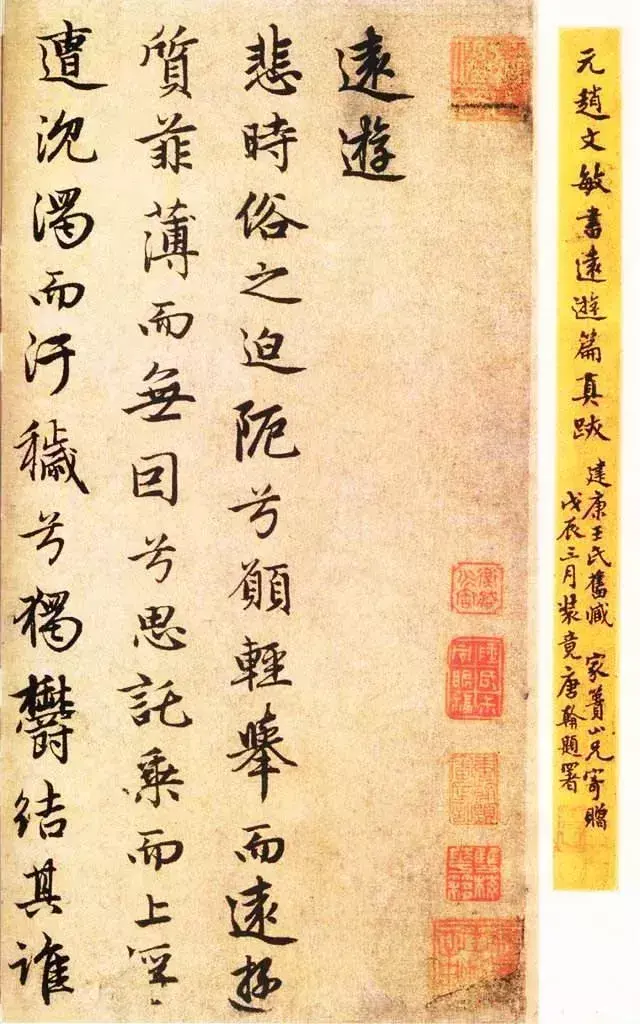 元趙文敏書遠遊篇真跡
建康王氏舊臧 家蕢山兄寄贈
戊辰三月裝竟唐翰題署
遠遊
悲時俗之迫阨兮願輕舉而遠遊
質菲薄而無因兮思託乘而上浮
遭沉濁而汙穢兮獨鬱結其誰